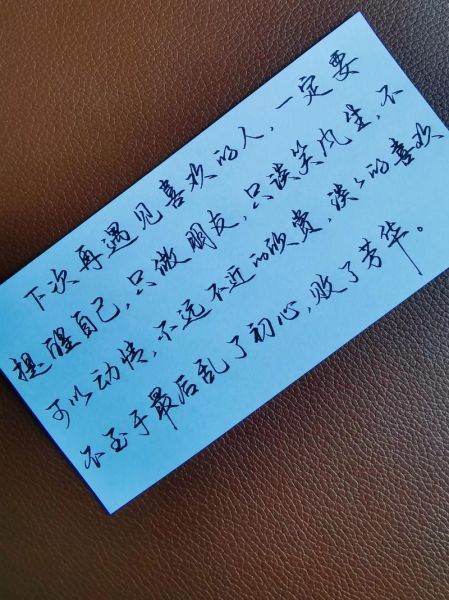 下次再遇见喜欢的人,一定要
提醒自己,只做朋友,只谈笑风生,不
可以动情,不远不近的欣赏,淡々的喜欢
不至于最后乱了初心,败了芳华。